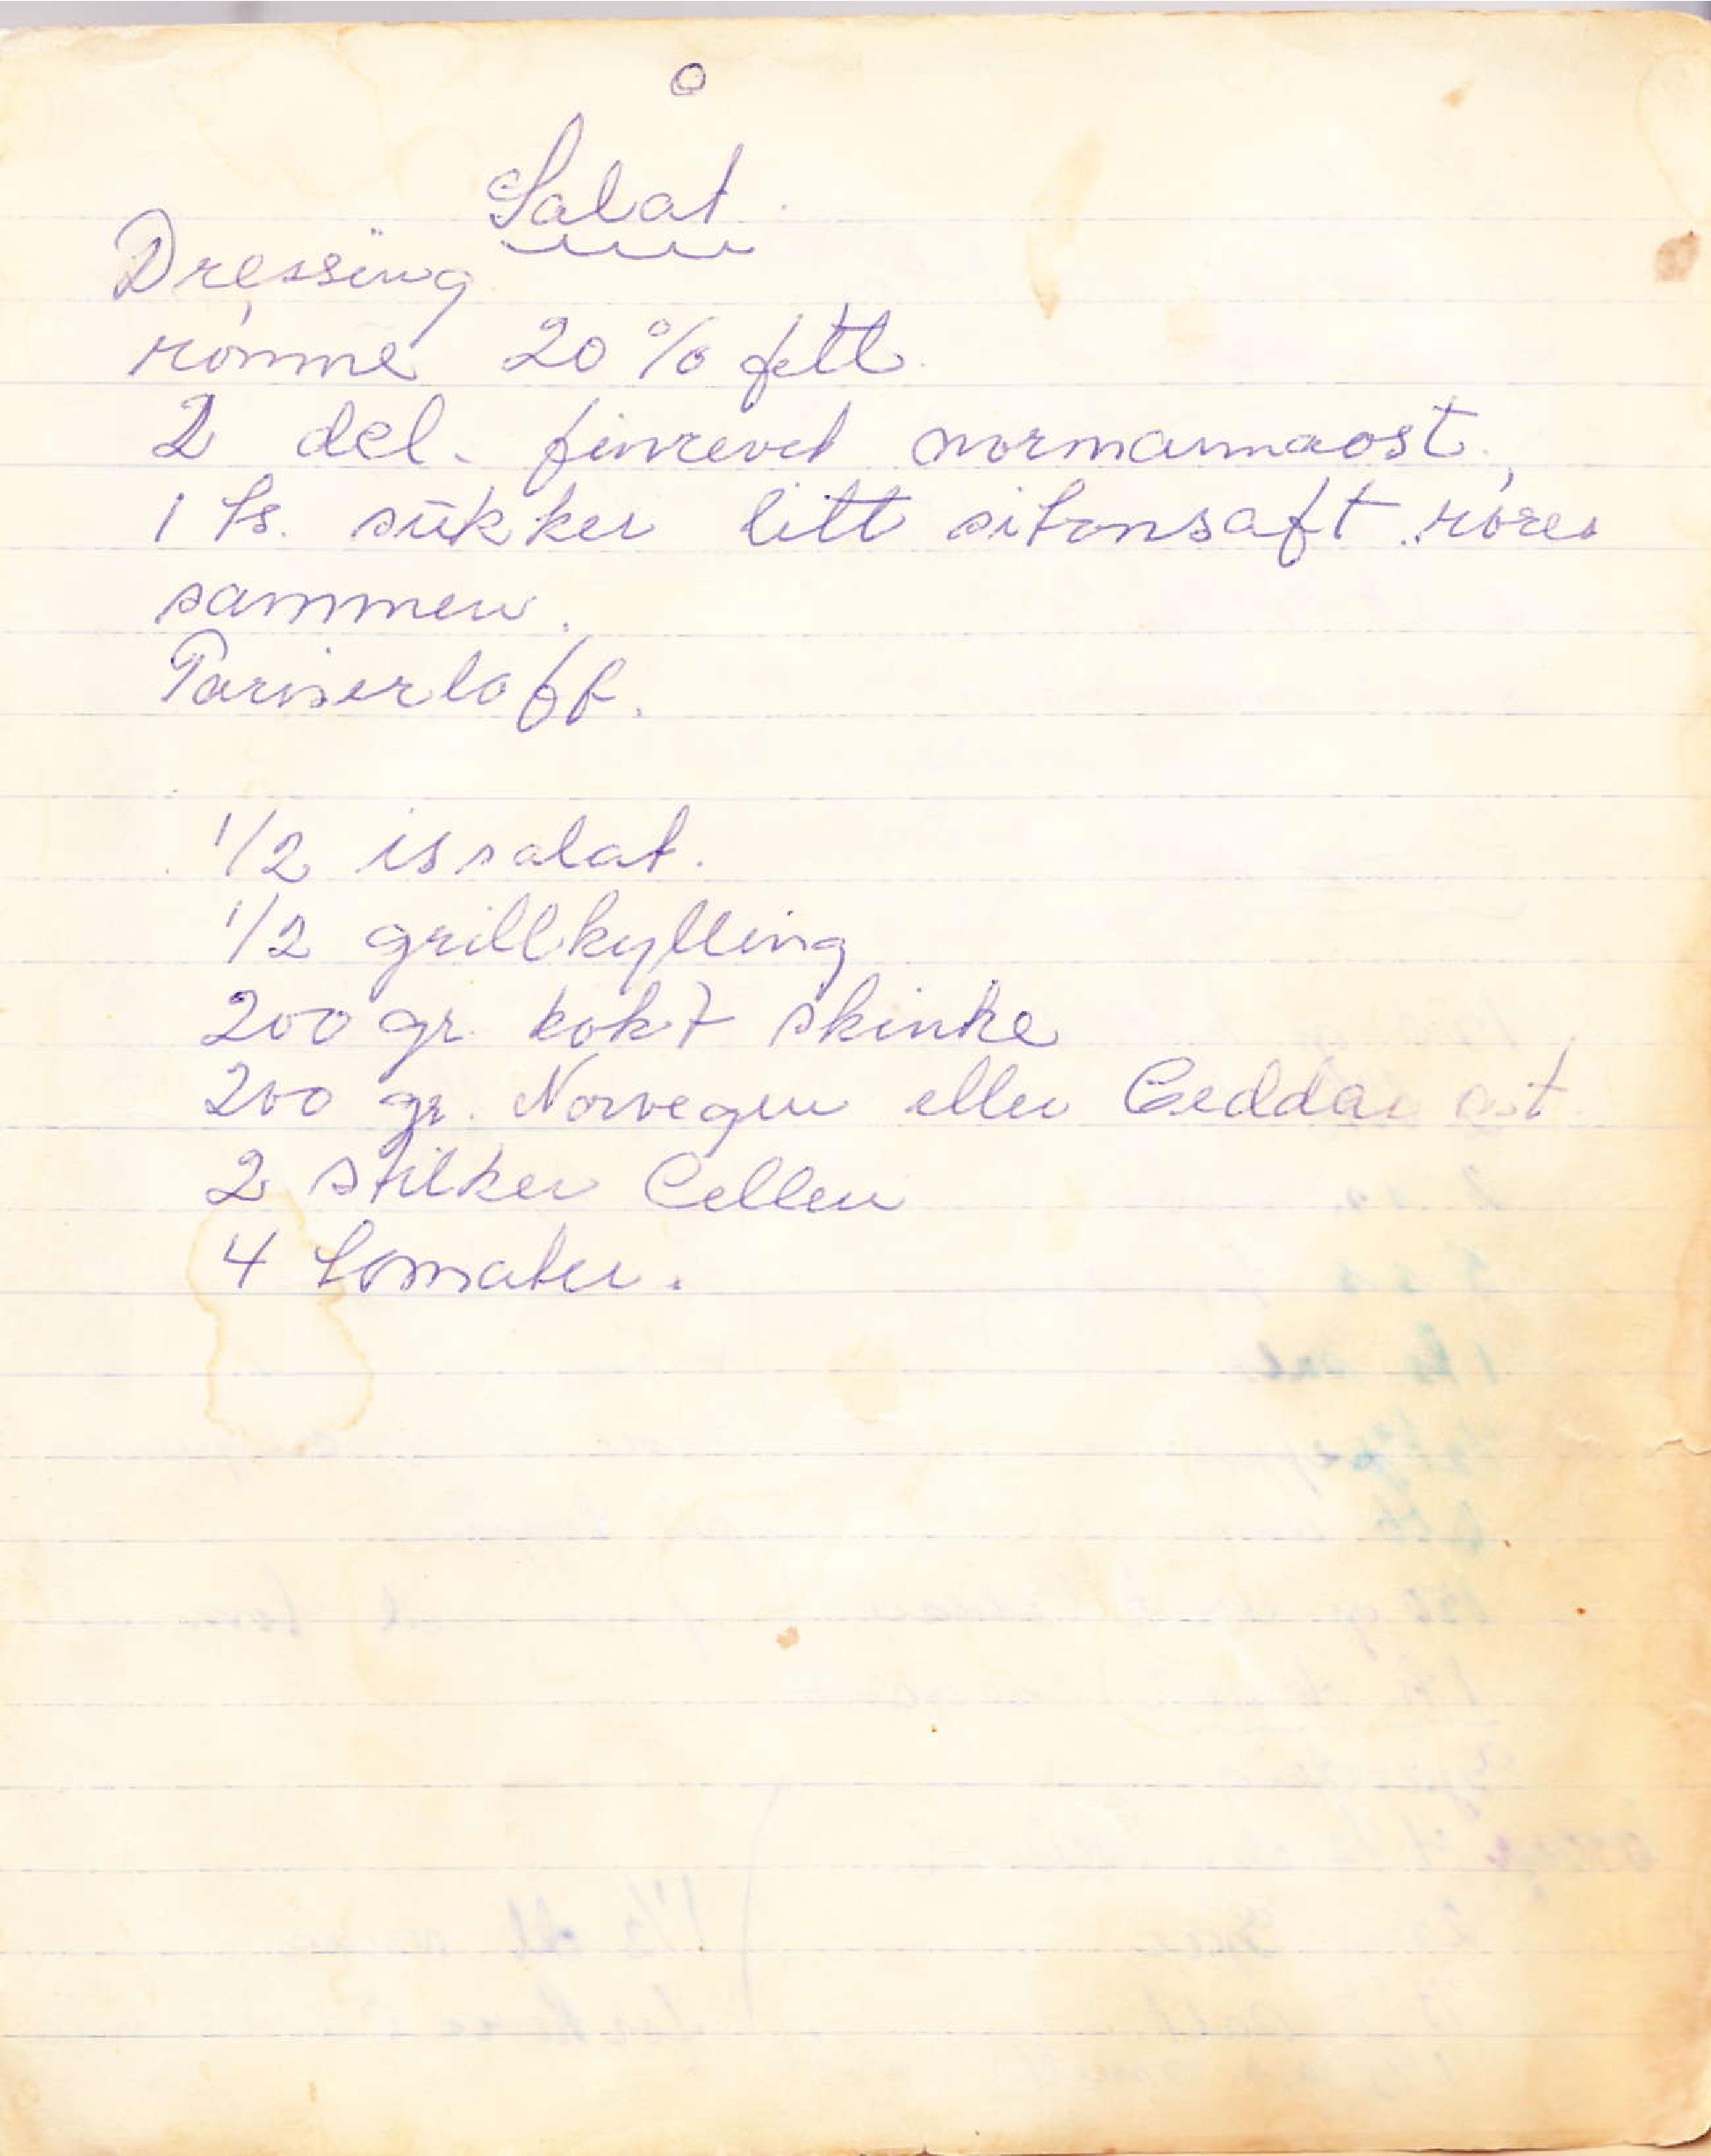 Salat
Dressing
rømme 20 % fett.
2 del. finrevet normannaost,
1 ts. sukker litt sitonsaft røres
sammen.
Pariserloff.
1/2 issalat.
1/2 grillkylling
200 gr. kokt skinke
200 gr. Norvegia eller Ceddar ost
2 stilker Celleri
4 tomater.